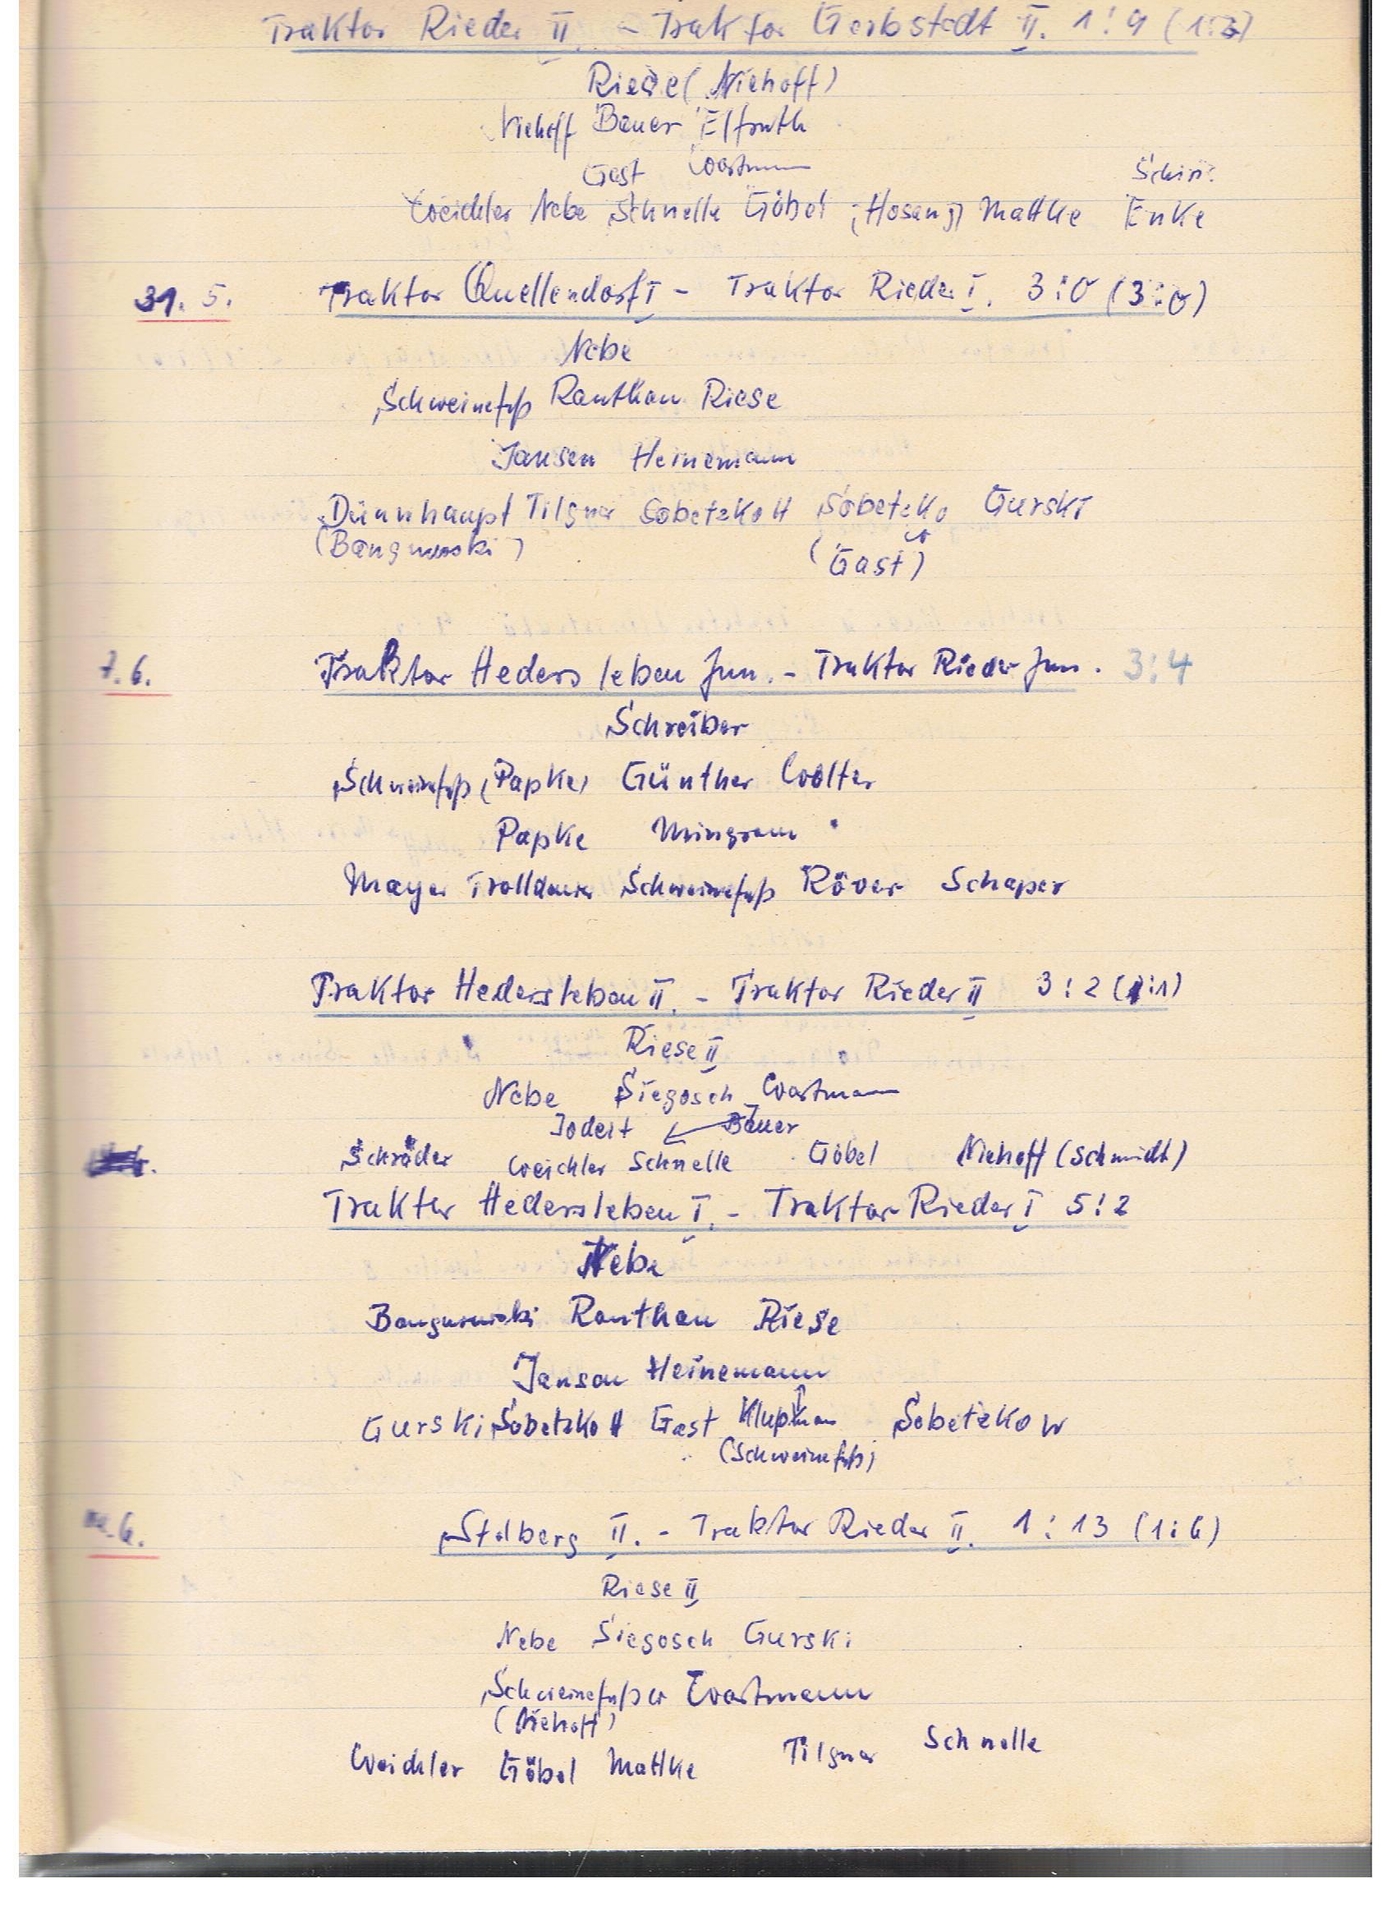 Traktor Rieder II. - Traktor Gerbstedt II. 1:9 (1:3)
Riese (Niehoff)
Niehoff Bauer Elfruth
Gast Woortmann Schiri:
Weichler Nebe Schnelle Göbel (Hosang) Mattke Enke
31. 5. Traktor Quellendorf I - Traktor Rieder I. 3:0 (3:0)
Nebe
Schweinefuß Ranthan Riese
Jansen Heinemann
Dünnhaupt Tilgner Sobetzko H Sobetzko W Gurski
(Bangurowski) (Gast)
7. 6. Traktor Hedersleben Jun. - Traktor Rieder Jun. 3:4
Schreiber
Schweinefuß (Papke) Günther Wolter
Papke Mingram
Mayer Trolldenier Schweinefuß Röver Schaper
Traktor Hedersleben II. - Traktor Rieder II 3:2 (1:1)
Riese II
Nebe Siegosch Woortmann
Jodeit Bauer
Schröder Weichler Schnelle Göbel Niehoff (Schmidt)
Traktor Hedersleben I. - Traktor Rieder I 5:2
Nebe
Bangurowski Ranthan Riese
Jansen Heinemann
Gurski Sobetzko H Gast Klupman Sobetzko W
(Schweinefuß)
6. Stolberg II. - Traktor Rieder II. 1:13 (1:6)
Riese II
Nebe Siegosch Gurski
Schweinefußer Woortmann
(Niehoff)
Weichler Göbel Mattke Tilgner Schnelle